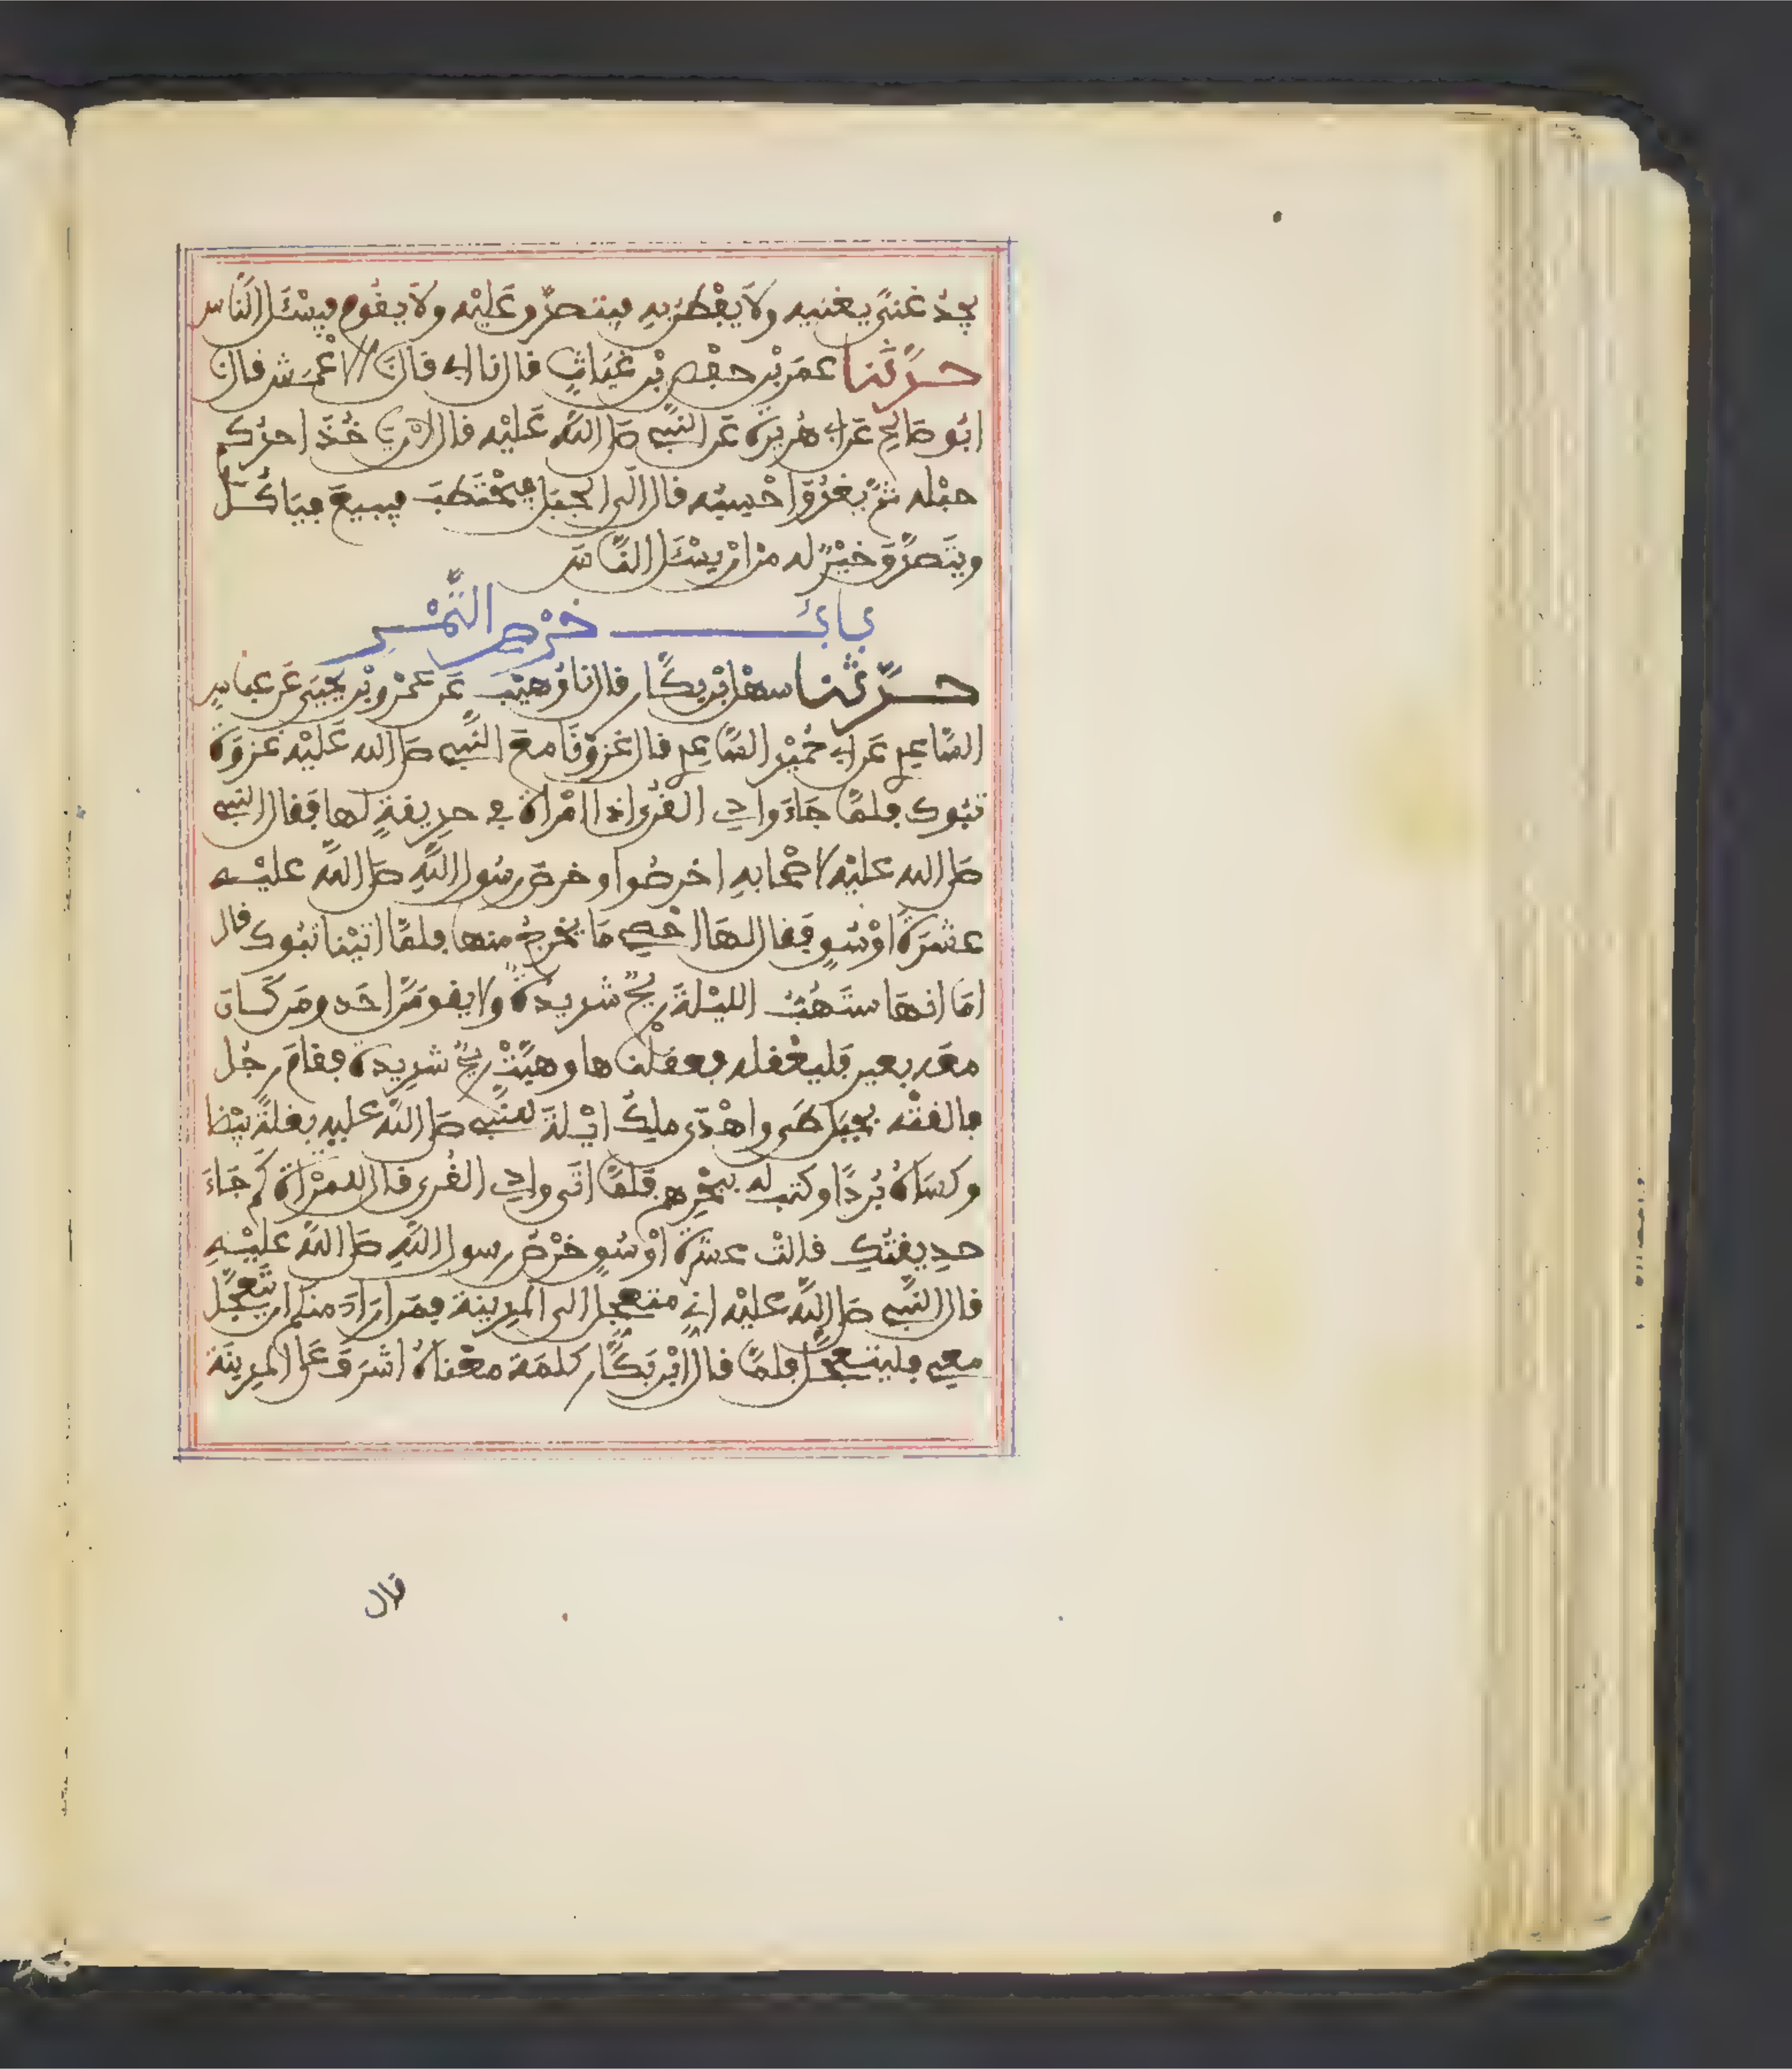 يجدُ غنىً يغنيه ولا يفطن به فيتصدق عليه ولا يقوم فيسئل الناس
حدثنا عمر بن حفص بن غياث قال نا ابي قال نا الاعمش قال نا
ابو صالح عن ابي هريرة عن النبي صلى الله عليه قال لان ياخذ احدكم
حبله ثم يغدو احسبه قال الى الجبل فيحتطب فيبيع فياكل
ويتصدق خير له من ان يسئل الناس
باب خرص التمر
حدثنا سهل بن بكار قال نا وهيب عن عمرو بن يحيى عن عباس
الساعدي عن ابي حميد الساعدي قال غزونا مع النبي صلى الله عليه غزوة
تبوك فلما جاء وادي القرى اذا امراة في حديقة لها فقال النبي
صلى الله عليه لاصحابه اخرصوا وخرص رسول الله صلى الله عليه
عشرة اوسق فقال لها احصي ما يخرج منها فلما اتينا تبوك قال
اما انها ستهب الليلة ريح شديدة ولا يقومن احد ومن كان
معه بعير فليعقله فعقلناها وهبت ريح شديدة فقام رجل
فالقته بجبل طي واهدى ملك ايلة للنبي صلى الله عليه بغلة بيضا
وكساه بردا وكتب له ببحرهم فلما اتى وادي القرى قال للمراة كم جاء
حديقتك قالت عشرة اوسق خرص رسول الله صلى الله عليه
قال النبي صلى الله عليه اني متعجل الى المدينة فمن اراد منكم ان يتعجل
معي فليتعجل فلما قال ابن بكار كلمة معناه اشرف على المدينة
قال